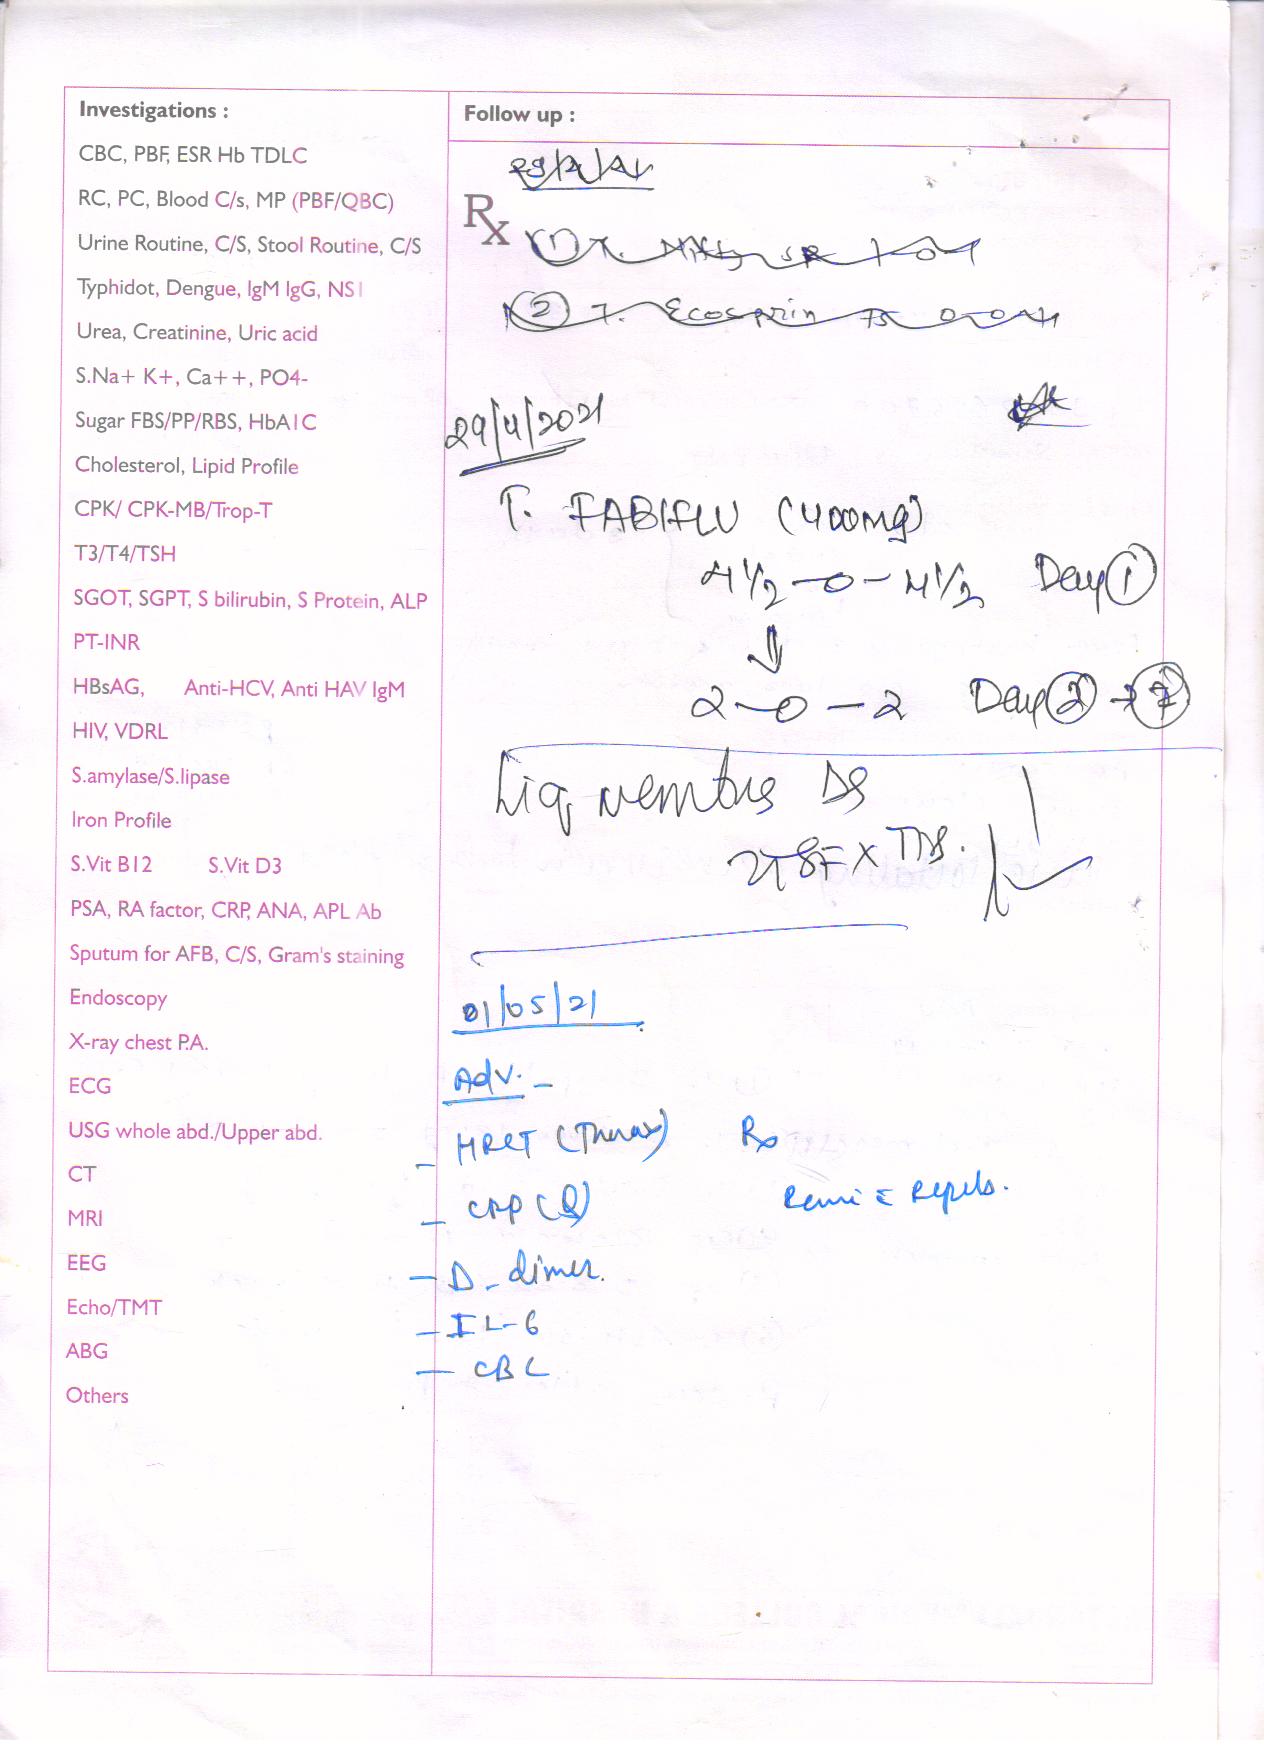 Investigations :
CBC, PBF, ESR Hb TDLC
RC, PC, Blood C/s, MP (PBF/QBC)
Urine Routine, C/S, Stool Routine, C/S
Typhidot, Dengue, IgM IgG, NS1
Urea, Creatinine, Uric acid
S.Na+ K+, Ca++, PO4-
Sugar FBS/PP/RBS, HbA1C
Cholesterol, Lipid Profile
CPK/ CPK-MB/Trop-T
T3/T4/TSH
SGOT, SGPT, S bilirubin, S Protein, ALP
PT-INR
HBsAG, Anti-HCV, Anti HAV IgM
HIV, VDRL
S.amylase/S.lipase
Iron Profile
S.Vit B12 S.Vit D3
PSA, RA factor, CRP, ANA, APL Ab
Sputum for AFB, C/S, Gram's staining
Endoscopy
X-ray chest P.A.
ECG
USG whole abd./Upper abd.
CT
MRI
EEG
Echo/TMT
ABG
Others
Follow up :
Rx
(1) T.
(2) T. Ecosprin 75
29/4/2021
T. FABIFLU (400mg)
4 1/2 - 0 - 4 1/2 Day 1
↓
2 - 0 - 2 Day 2 → 7
Liq DS
2TSF X TDS.
01/05/21
Adv. -
- HRCT (Thorax) Rx
- CRP (Q)
- D-dimer.
- IL-6
- CBC